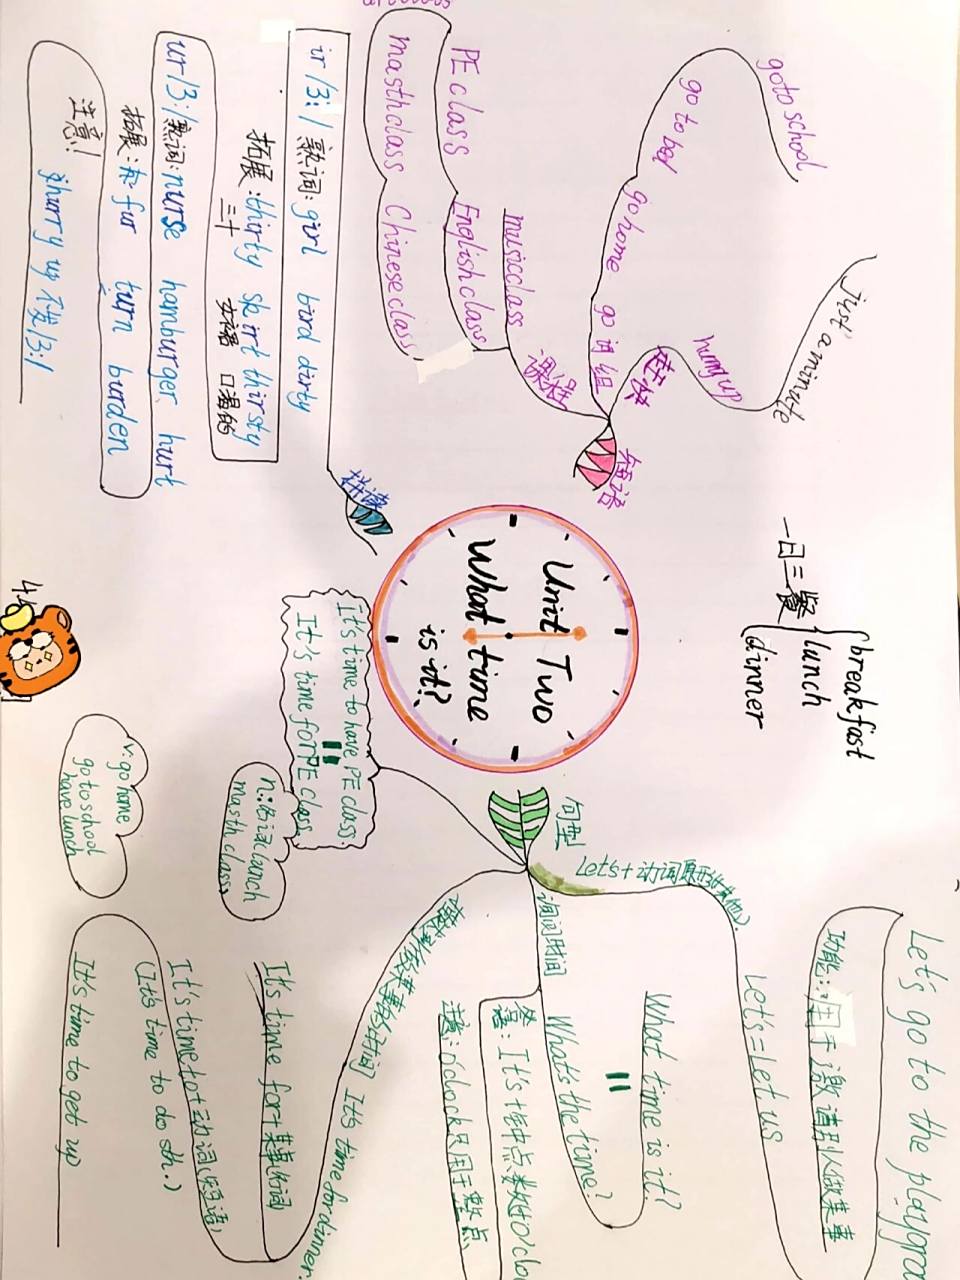 Unit Two
What time
is it?
短语
赶快
hurry up
Just a minute
go 词组
go home
go to bed
go to school
课程
music class
English class
PE class
Chinese class
masth class
一日三餐
breakfast
lunch
dinner
拼读
ir /3:/ 熟词: girl bird dirty
拓展: thirty skirt thirsty
三十 女裙 口渴的
ur /3:/ 熟词: nurse hamburger hurt
拓展: fur turn burden
注意!
hurry up 不发/3:/
句型
Let's+动词原形(其他).
Let's=Let us
功能: 用于邀请别人做某事
Let's go to the playgrou
询问时间
What time is it?
=
What's the time?
答语: It's+钟点数(o'clo
注意: o'clock只用于整点
It's time for dinner.
It's time for+某事(名词)
It's time to+动词(短语)
(It's time to do sth.)
It's time to get up
It's time to have PE class.
=
It's time for PE class.
n:名词 lunch
masth class
v: go home
go to school
have lunch